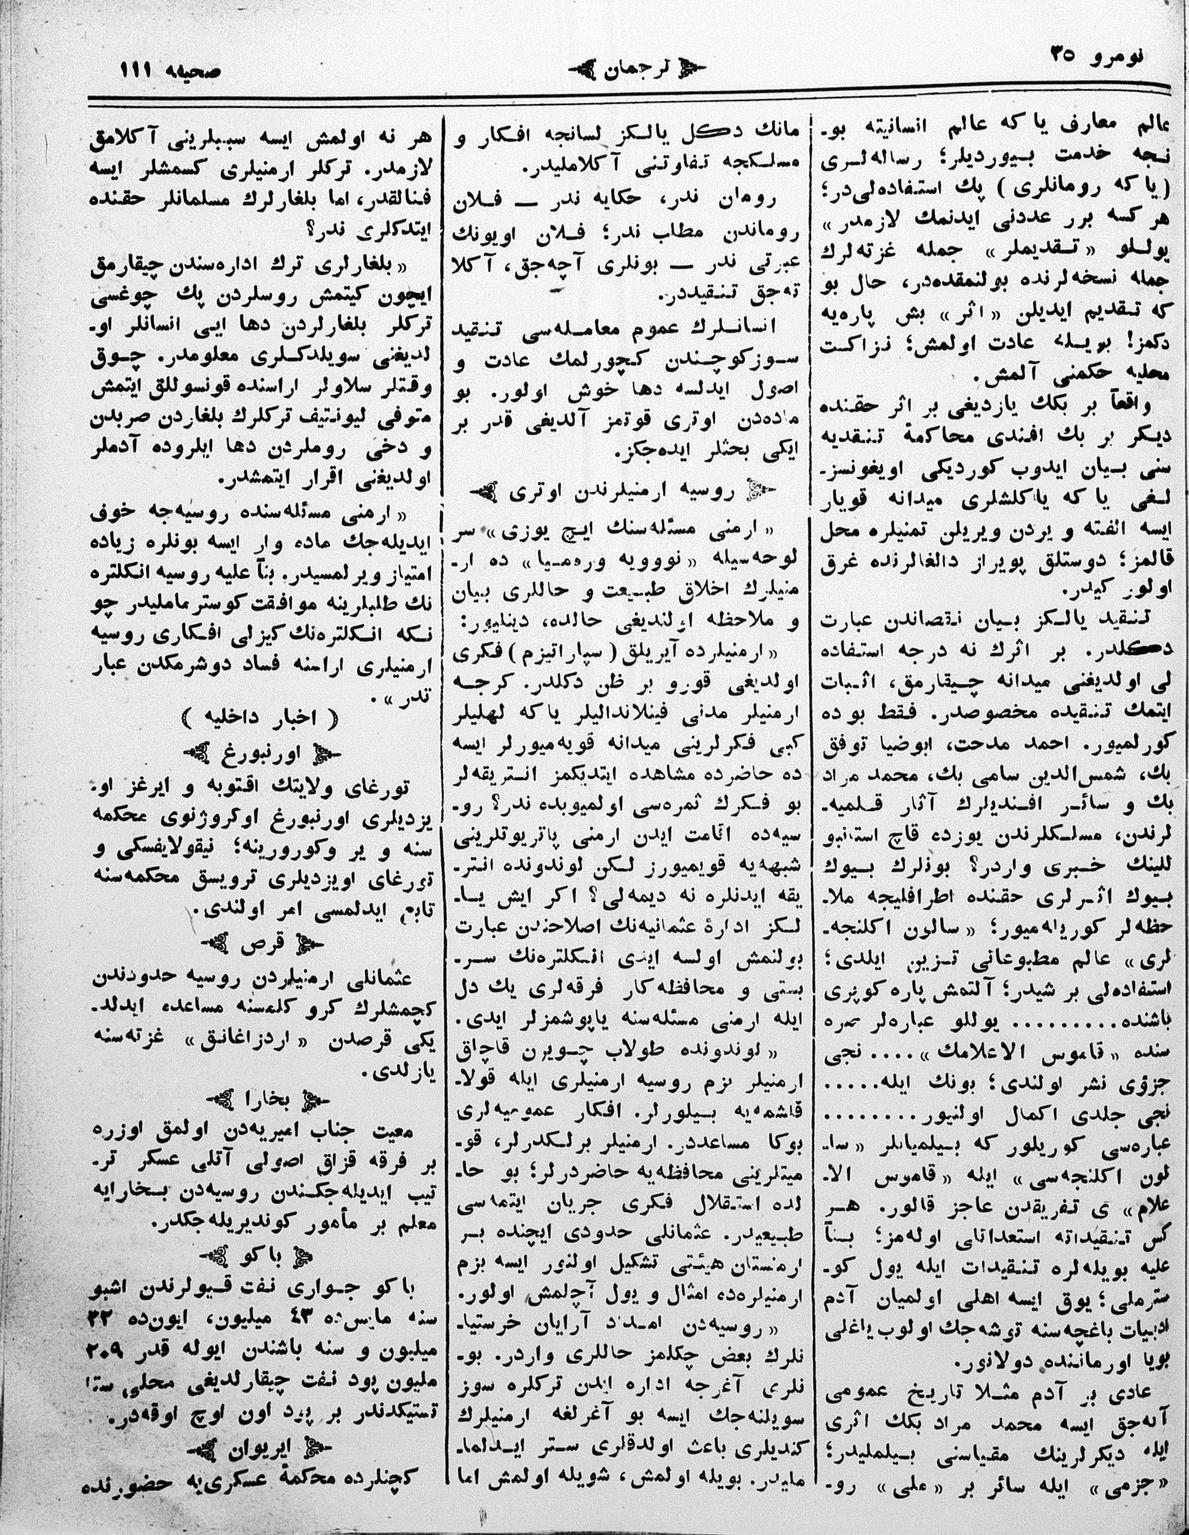 نومرو ٣٥
ترجمان
صحيفه ١١١
عالم معارف ياكه عالم انسانيته بو-
نجه خدمت بيورديلر؛ رساله‌لرى
(ياكه رومانلرى) پك استفاده‌لى‌در؛
هر كسه برر عددنى ايدنمك لازمدر»
يوللو «تقديملر» جمله غزته‌لرك
جمله نسخه‌لرنده بولنمقده‌در، حال بو
كه تقديم ايديلن «اثر» بش پاره‌يه
دكمز! بويله عادت اولمش؛ نزاكت
محليه حكمنى آلمش.
واقعاً بر بكك يازديغى بر اثر حقنده
ديكر بر بك افندى محاكمهٔ تنقديه
سنى بيان ايدوب كورديكى اويغونسز-
لغى ياكه ياكلشلرى ميدانه قويار
ايسه الفته و يردن ويريلن تمنيلره محل
قالمز؛ دوستلق پويراز دالغالرنده غرق
اولور كيدر.
تنقيد يالكز بيان نقصاندن عبارت
دكلدر. بر اثرك نه درجه استفاده
لى اولديغنى ميدانه چيقارمق، اثبات
ايتمك تنقيده مخصوصدر. فقط بوده
كورلميور. احمد مدحت، ابوضيا توفق
بك، شمس‌الدين سامى بك، محمد مراد
بك و سائر افنديلرك آثار قلميه-
لرندن، مسلكلرندن يوزده قاچ استانبو
للينك خبرى واردر؟ بونلرك بيوك
بيوك اثرلرى حقنده اطرافليجه ملا-
حظه‌لر كوريله‌ميور؛ «سالون اكلنجه-
لرى» عالم مطبوعاتى تزيين ايلدى؛
استفاده‌لى بر شيدر؛ آلتمش پاره كوپرى
باشنده......... يوللو عباره‌لر صره
سنده «قاموس الاعلامك».... نجى
جزؤى نشر اولندى؛ بونك ايله.....
نجى جلدى اكمال اولنيور........
عباره‌سى كوريلور كه بيلميانلر «سا-
لون اكلنجه‌سى» ايله «قاموس الا-
علام» ى تفريقدن عاجز قالور. هر
كس تنقيداته استعداناى اوله‌مز؛ بنأ
عليه بويله‌لره تنقيدات ايله يول كو-
سترملى؛ يوق ايسه اهلى اولميان آدم
ادبيات باغچه‌سنه توشه‌جك اولوب ياغلى
بويا اورماننده دولانور.
عادى بر آدم مثلا تاريخ عمومى
آله‌جق ايسه محمد مراد بكك اثرى
ايله ديكرلرينك مقياسنى بيلمليدر؛
«جزمى» ايله سائر بر «ملى» رو-
مانك دكل يالكز لسانجه افكار و
مسلكجه تفاوتنى آكلامليدر.
رومان ندر، حكايه ندر — فلان
روماندن مطلب ندر؛ فلان اويونك
عبرتى ندر — بونلرى آچه‌جق، آكلا
ته‌جق تنقيددر.
انسانلرك عموم معامله‌سى تنقيد
سوزكوچندن كچورلمك عادت و
اصول ايدلسه دها خوش اولور. بو
ماده‌دن اوترى قوتمز آلديغى قدر بر
ايكى بحثلر ايده‌جكز.
روسيه ارمنيلرندن اوترى
«ارمنى مسئله‌سنك ايچ يوزى» سر
لوحه‌سيله «نووويه وره‌ميا» ده ار-
منيلرك اخلاق طبيعت و حاللرى بيان
و ملاحظه اولنديغى حالده، دينليور:
«ارمنيلرده آيريلق (سپاراتيزم) فكرى
اولديغى قورو بر ظن دكلدر. كرچه
ارمنيلر مدنى فينلانداليلر ياكه لهليلر
كبى فكرلرينى ميدانه قويه‌ميورلر ايسه
ده حاضرده مشاهده ايتديكمز انتريقه‌لر
بو فكرك ثمره‌سى اولميوبده ندر؟ رو-
سيه‌ده اقامت ايدن ارمنى پاتريوتلرينى
شبهه‌يه قويميورز لكن لوندونده انتر-
يقه ايدنلره نه ديمه‌لى؟ اكر ايش يا-
لكز ادارهٔ عثمانيه‌نك اصلاحندن عبارت
بولنمش اولسه ايدى انكلتره‌نك سر-
بستى و محافظه‌كار فرقه‌لرى يك دل
ايله ارمنى مسئله‌سنه ياپوشمزلر ايدى.
«لوندونده طولاب چويرن قاچاق
ارمنيلر بزم روسيه ارمنيلرى ايله قولا-
قاشمه‌يه بيلورلر. افكار عموميه‌لرى
بوكا مساعددر. ارمنيلر برلكدرلر، قو-
ميتلرينى محافظه‌يه حاضردرلر؛ بو حا-
لده استقلال فكرى جريان ايتمه‌سى
طبيعيدر. عثمانلى حدودى ايچنده بر
ارمنستان هيئتى تشكيل اولنور ايسه بزم
ارمنيلره‌ده امثال و يول آچلمش اولور.
«روسيه‌دن امداد آرايان خرستيا-
نلرك بعض چكلمز حاللرى واردر. بو-
نلرى آغرجه اداره ايدن تركلره سوز
سويلنه‌جك ايسه بو آغرلغه ارمنيلرك
كنديلرى باعث اولدقلرى ستر ايدلما-
مليدر. بويله اولمش، شويله اولمش اما
هر نه اولمش ايسه سببلرينى آكلامق
لازمدر. تركلر ارمنيلرى كسمشلر ايسه
فنالقدر، اما بلغارلرك مسلمانلر حقنده
ايتدكلرى ندر؟
«بلغارلرى ترك اداره‌سندن چيقارمق
ايچون كيتمش روسلردن پك چوغسى
تركلر بلغارلردن دها ايى انسانلر او-
لديغنى سويلدكلرى معلومدر. چوق
وقتلر سلاولر اراسنده قونسوللق ايتمش
متوفى ليونتيف تركلرك بلغاردن صربدن
و دخى روملردن دها ايلروده آدملر
اولديغنى اقرار ايتمشدر.
«ارمنى مسئله‌سنده روسيه‌جه خوف
ايديله‌جك ماده وار ايسه بونلره زياده
امتياز ويرلمسيدر. بنأ عليه روسيه انكلتره
نك طلبلرينه موافقت كوسترمامليدر چو
نكه انكلتره‌نك كيزلى افكارى روسيه
ارمنيلرى اراسنه فساد دوشرمكدن عبار
تدر».
(اخبار داخليه)
اورنبورغ
تورغاى ولايتك اقتوبه و ايرغز او-
يزديلرى اورنبورغ اوكروژنوى محكمه
سنه و ير وكورورينه؛ نيقولايفسكى و
تورغاى اويزديلرى ترويسق محكمه‌سنه
تابع ايدلمسى امر اولندى.
قرص
عثمانلى ارمنيلردن روسيه حدودندن
كچمشلرك كرو كلمسنه مساعده ايدلد-
يكى قرصدن «اردزاغانق» غزته‌سنه
يازلدى.
بخارا
معيت جناب اميريه‌دن اولمق اوزره
بر فرقه قزاق اصولى آتلى عسكر تر-
تيب ايديله‌جكندن روسيه‌دن بخارايه
معلم بر مأمور كونديريله‌جكدر.
باكو
باكو جوارى نفت قبولرندن اشبو
سنه مايس‌ده ٤٣ ميليون، ايون‌ده ٣٢
ميليون و سنه باشندن ايوله قدر ٢٠٩
مليون پود نفت چيقارلديغى محلى ستا
تستيكدندر بر پود اون اوچ اوقه‌در.
ايريوان
كچنلرده محكمهٔ عسكرى‌يه حضورنده